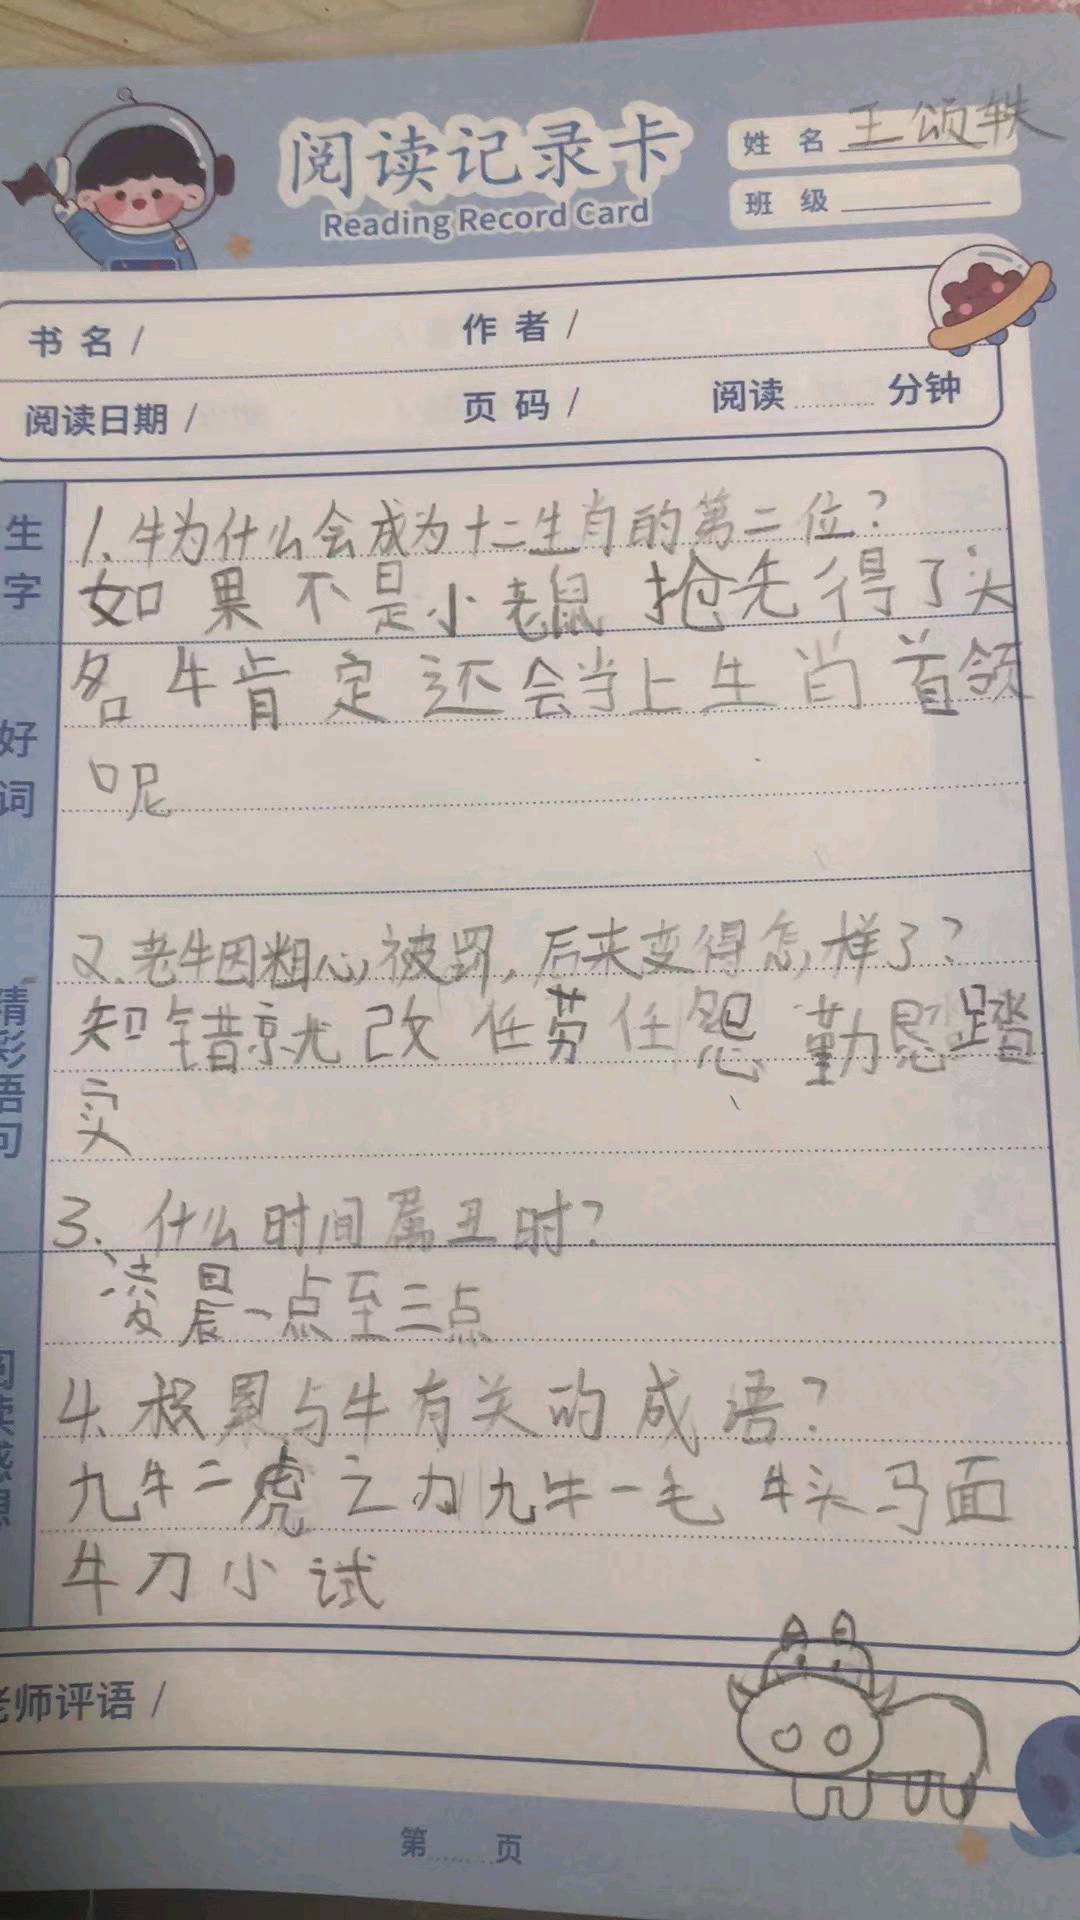 阅读记录卡
Reading Record Card
姓 名 王颂轶
班 级
书 名 /
作 者 /
阅读日期 /
页 码 /
阅读 分钟
生字
好词
精彩语句
阅读感想
1.牛为什么会成为十二生肖的第二位?
如果不是小老鼠抢先得了头
名牛肯定还会当上生肖首领
呢
2.老牛因粗心被罚,后来变得怎样了?
知错就改 任劳任怨 勤恳踏
实
3、什么时间属丑时?
凌晨一点至三点
4.积累与牛有关的成语?
九牛二虎之力九牛一毛 牛头马面
牛刀小试
老师评语 /
第 页